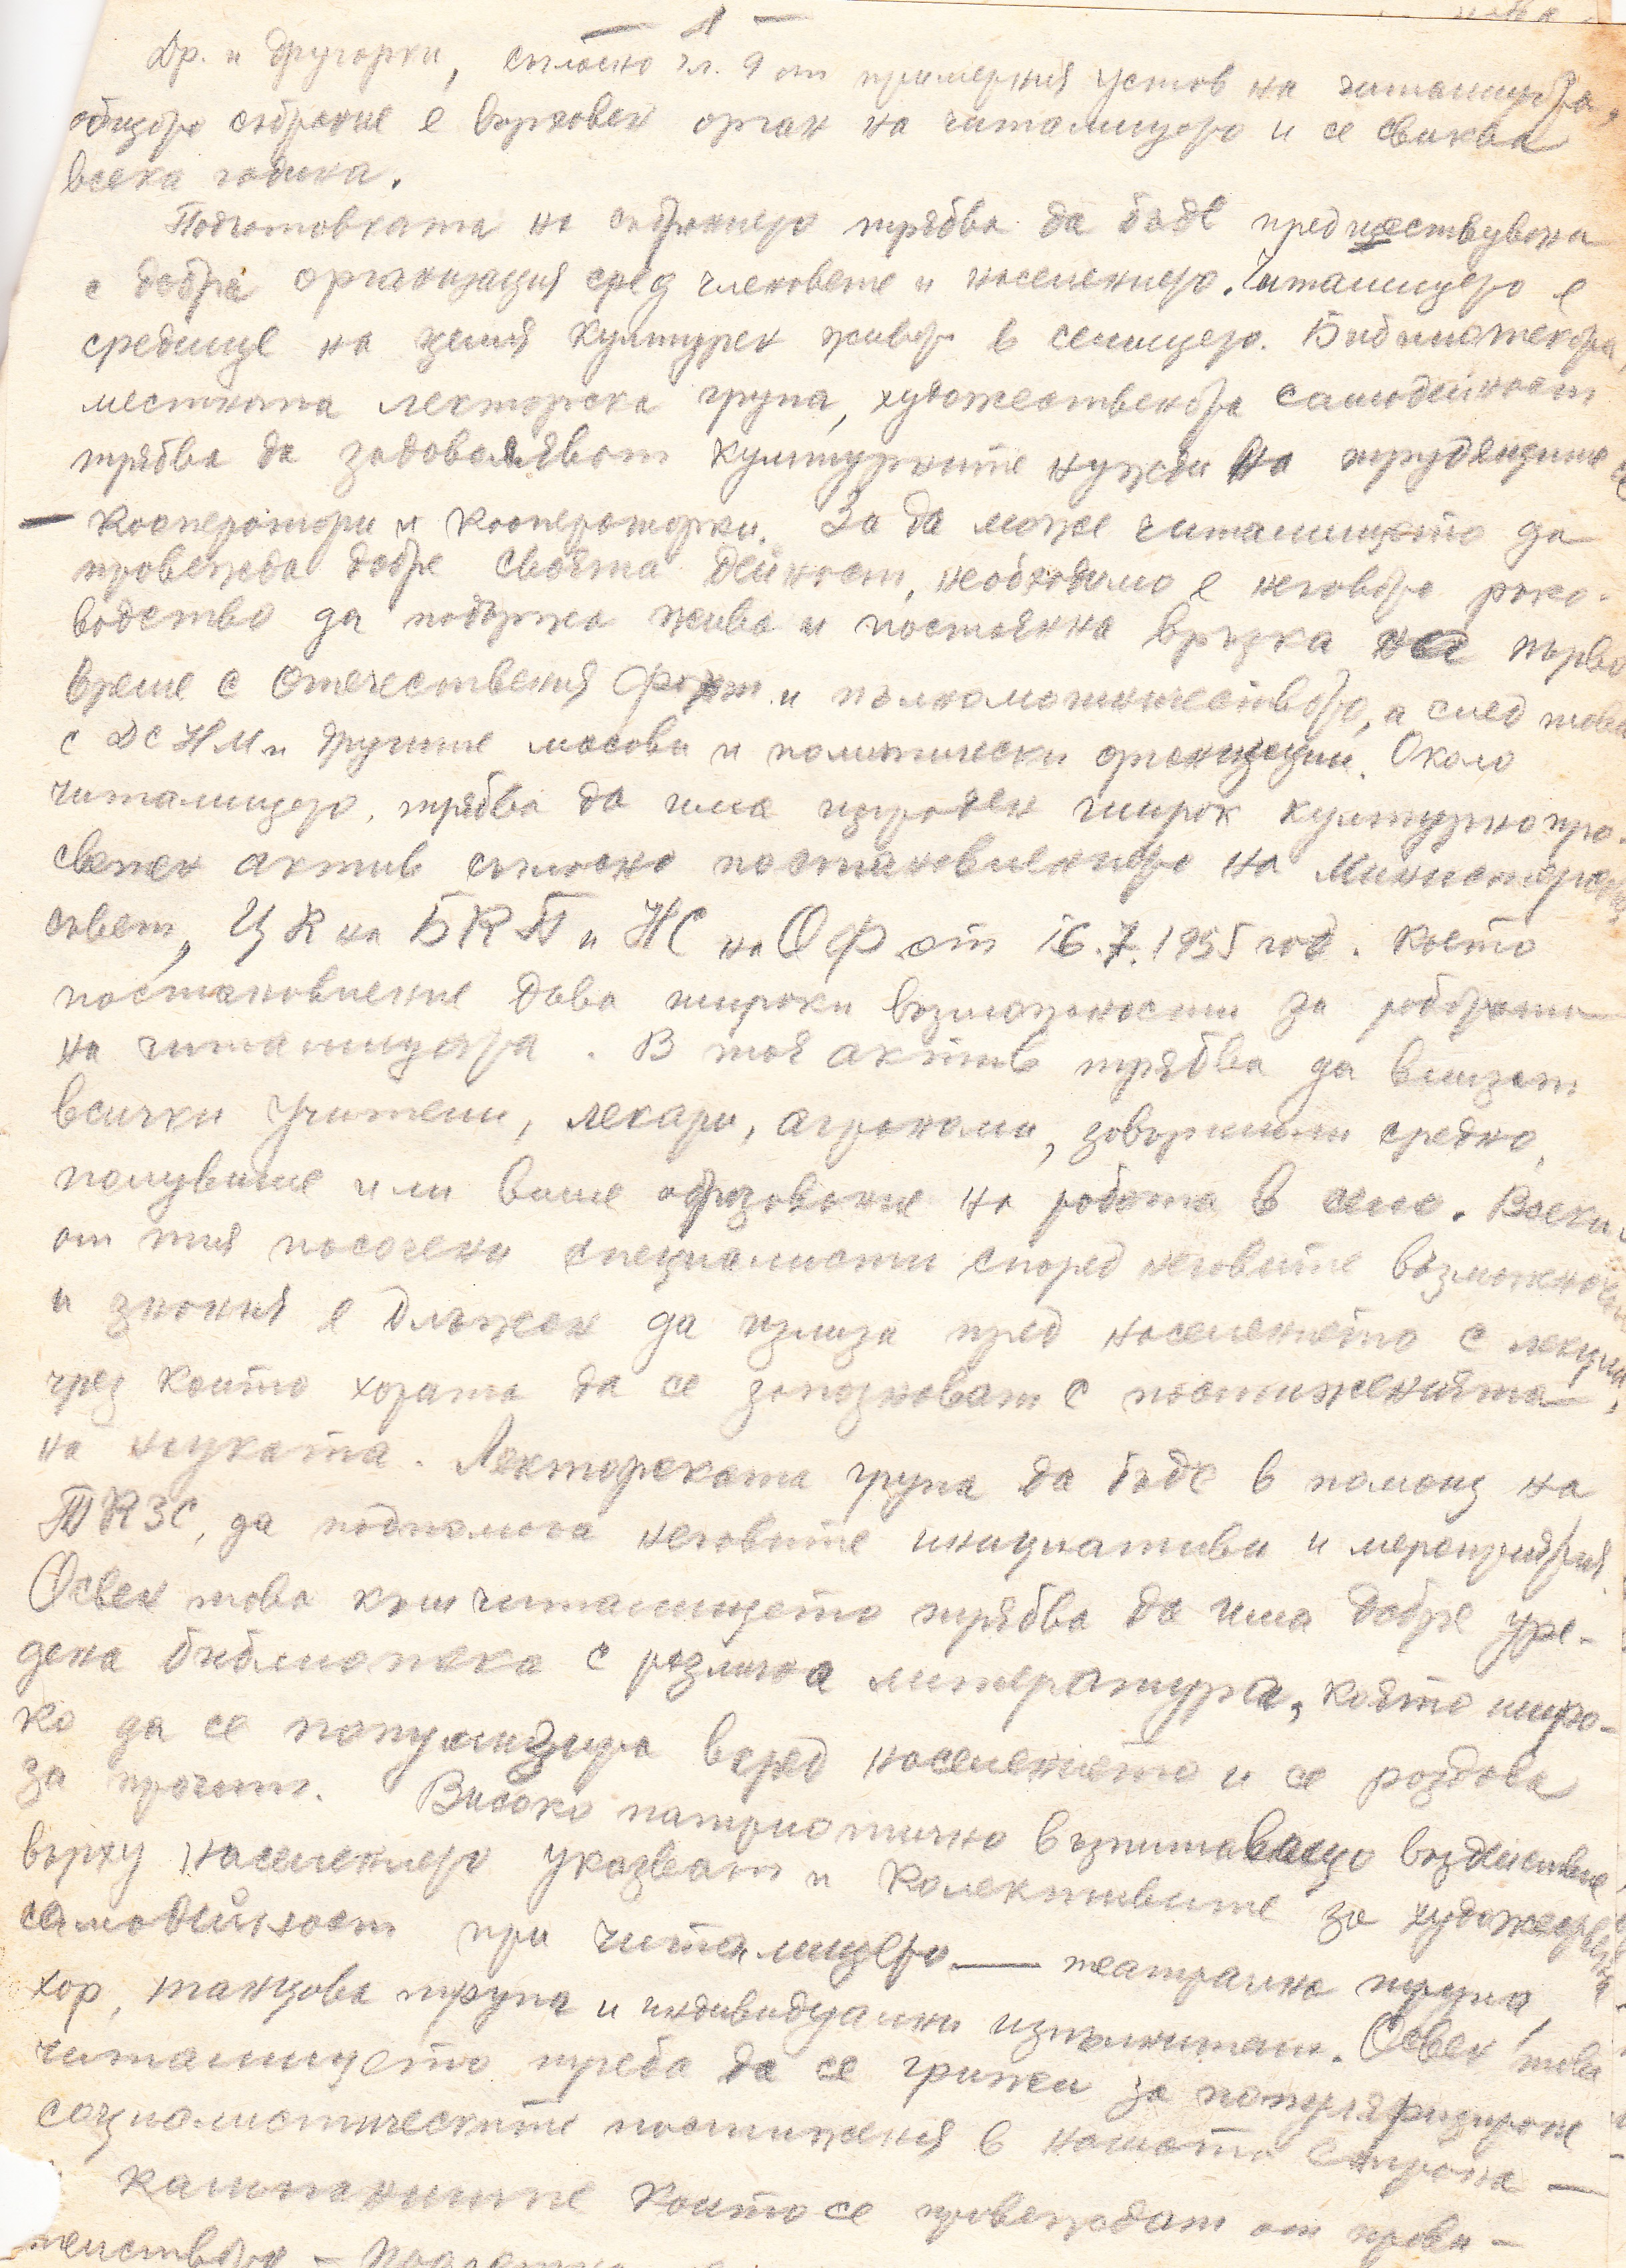 – 1 –
Др. и другорки, съгласно чл. 9 от примерния устав на читалищата,
общото събрание е върховен орган на читалището и се свиква
всяка година.
Подготовката на събранието трябва да бъде предшествувана
с добра организация сред членовете и населението. Читалището е
средище на целия културен живот в селището. Библиотеката,
местната лекторска група, художествената самодейност
трябва да задоволяват културните нужди на трудещите се
– кооператори и кооператорки. За да може читалището да
провежда добре своята дейност, необходимо е неговото ръко-
водство да подържа жива и постоянна връзка на първо
време с Отечествения фронт и пълномощничеството, а след това
с ДСНМ и другите масови и политически организации. Около
читалището трябва да има изграден широк културнопро-
светен актив съгласно постановлението на Министерския
съвет, ЦК на БКП и НС на ОФ от 16.7.1955 год. което
постановление дава широки възможности за работата
на читалищата. В тоя актив трябва да влизат
всички учители, лекари, агрономи, завършили средно,
полувисше или висше образование на работа в село. Всеки
от тия посочени специалисти според неговите възможности
и знания е длъжен да излиза пред населението с лекции,
чрез които хората да се запознават с постиженията
на науката. Лекторската група да бъде в помощ на
ТКЗС, да подпомага неговите инициативи и мероприятия.
Освен това към читалището трябва да има добре уре-
дена библиотека с различна литература, която широ-
ко да се популязира всред населението и се раздава
за прочит. Високо патриотично възпитаващо въздействие
върху населението указват и колективите за художествена
самодейност при читалището — театрална трупа,
хор, танцова трупа и индивидуални изпълнители. Освен това
читалището треба да се грижи за популяризиране
социалистическите постижения в нашата страна —
кампаниите които се провеждат от прави-
телството –